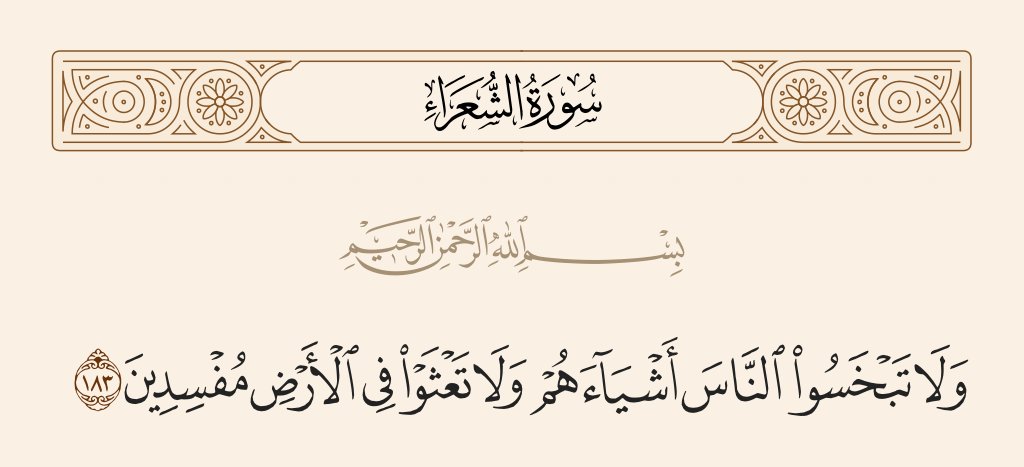 سُورَةُ الشُّعَرَاءِ
بِسْمِ ٱللَّهِ ٱلرَّحْمَٰنِ ٱلرَّحِيمِ
وَلَا تَبْخَسُوا۟ ٱلنَّاسَ أَشْيَآءَهُمْ وَلَا تَعْثَوْا۟ فِى ٱلْأَرْضِ مُفْسِدِينَ ١٨٣